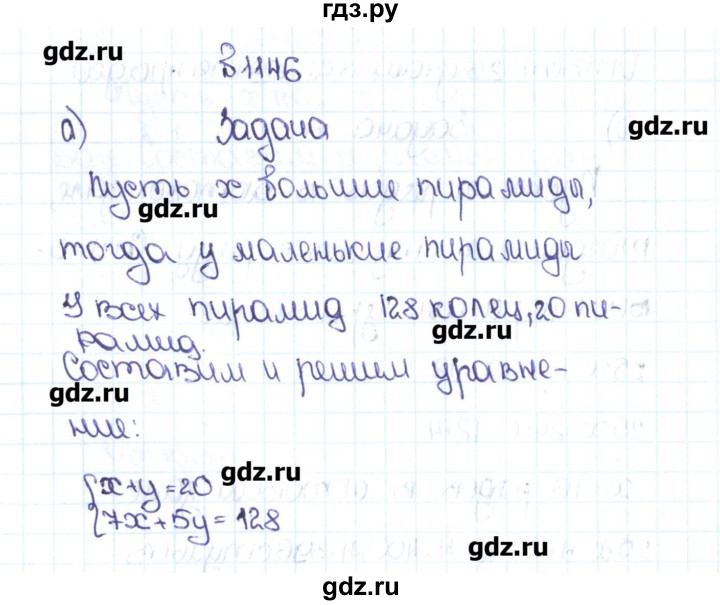 гдз.ру
gdz.ru
В 1146
а) Задача
gdz.ru
Пусть х большие пирамиды,
gdz.ru
тогда у маленькие пирамиды
У всех пирамид 128 колец, 20 пи-
gdz.ru
рамид.
Составим и решим уравне-
gdz.ru
ние:
gdz.ru
{x+y=20
{7x+5y=128
gdz.ru
gdz.ru